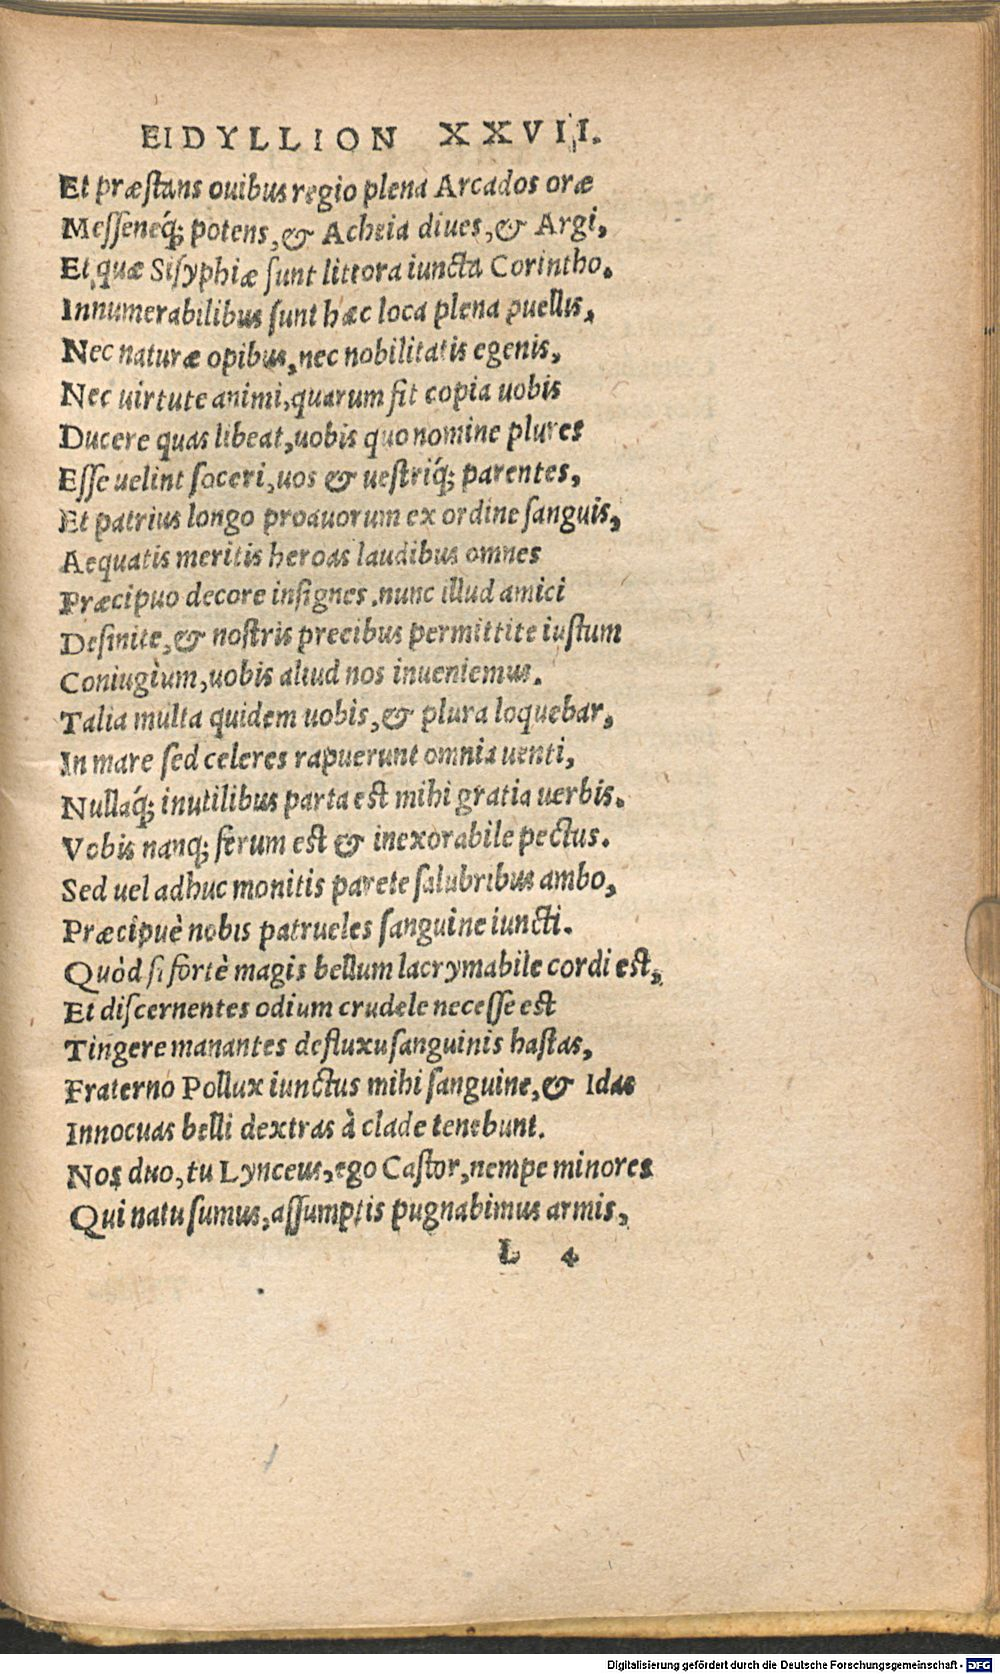 EIDYLLION XXVII.
Et præstans ouibus regio plena Arcados oræ
Messeneq́; potens, & Acheia diues, & Argi,
Et quæ Sisyphiæ sunt littora iuncta Corintho.
Innumerabilibus sunt hæc loca plena puellis,
Nec naturæ opibus, nec nobilitatis egenis,
Nec uirtute animi, quarum fit copia uobis
Ducere quas libeat, uobis quo nomine plures
Esse uelint soceri, uos & uestriq́; parentes,
Et patrius longo proauorum ex ordine sanguis,
Aequatis meritis heroas laudibus omnes
Præcipuo decore insignes. nunc illud amici
Desinite, & nostris precibus permittite iustum
Coniugium, uobis aliud nos inueniemus.
Talia multa quidem uobis, & plura loquebar,
In mare sed celeres rapuerunt omnia uenti,
Nullaq́; inutilibus parta est mihi gratia uerbis.
Vobis nanq; ferum est & inexorabile pectus.
Sed uel adhuc monitis parete salubribus ambo,
Præcipuè nobis patrueles sanguine iuncti.
Quòd si fortè magis bellum lacrymabile cordi est,
Et discernentes odium crudele necesse est
Tingere manantes defluxu sanguinis hastas,
Fraterno Pollux iunctus mihi sanguine, & Idas
Innocuas belli dextras à clade tenebunt.
Nos duo, tu Lynceus, ego Castor, nempe minores
Qui natu sumus, assumptis pugnabimus armis,
L 4
Digitalisierung gefördert durch die Deutsche Forschungsgemeinschaft - DFG